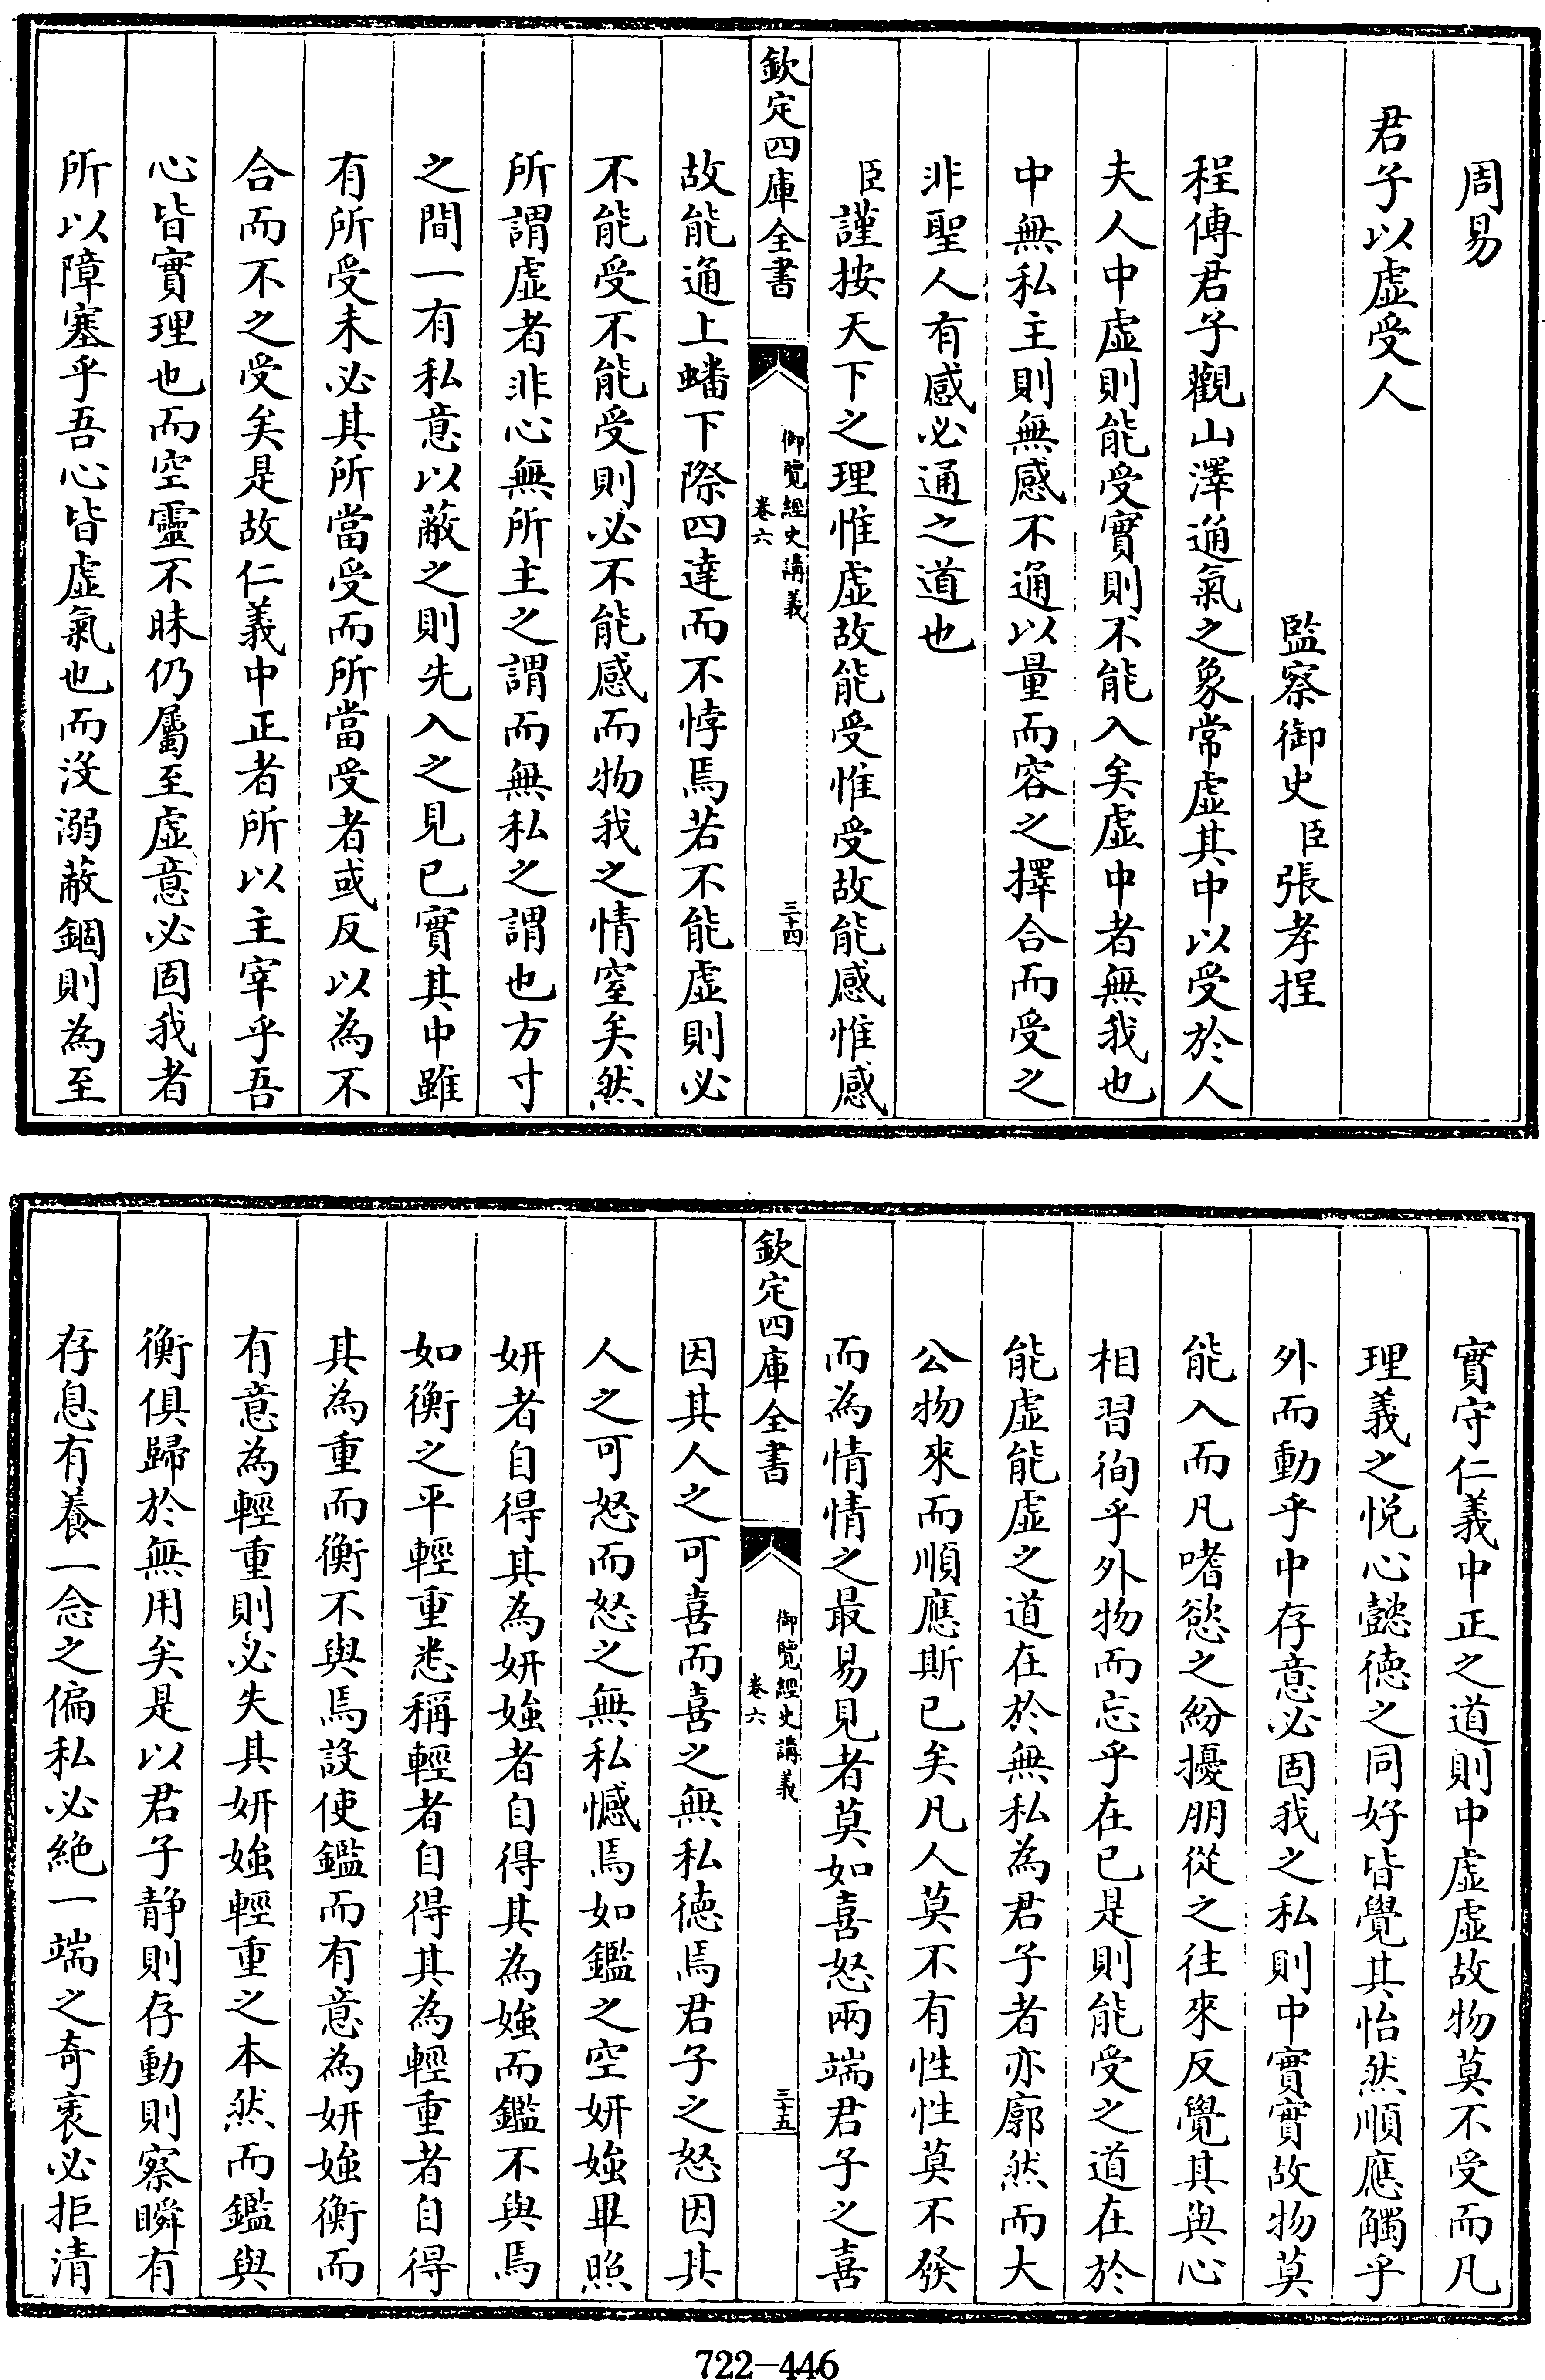 周易
君子以虛受人
監察御史臣張孝捏
程傳君子觀山澤通氣之象常虛其中以受於人
夫人中虛則能受實則不能入矣虛中者無我也
中無私主則無感不通以量而容之擇合而受之
非聖人有感必通之道也
臣謹按天下之理惟虛故能受惟受故能感惟感
欽定四庫全書
御覽經史講義
卷六
三十四
故能通上蟠下際四達而不悖焉若不能虛則必
不能受不能受則必不能感而物我之情窒矣然
所謂虛者非心無所主之謂而無私之謂也方寸
之間一有私意以蔽之則先入之見已實其中雖
有所受未必其所當受而所當受者或反以為不
合而不之受矣是故仁義中正者所以主宰乎吾
心皆實理也而空靈不昧仍屬至虛意必固我者
所以障塞乎吾心皆虛氣也而沒溺蔽錮則為至
實守仁義中正之道則中虛虛故物莫不受而凡
理義之悅心懿德之同好皆覺其怡然順應觸乎
外而動乎中存意必固我之私則中實實故物莫
能入而凡嗜慾之紛擾朋從之往來反覺其與心
相習徇乎外物而忘乎在已是則能受之道在於
能虛能虛之道在於無私為君子者亦廓然而大
公物來而順應斯已矣凡人莫不有性性莫不發
而為情情之最易見者莫如喜怒兩端君子之喜
欽定四庫全書
御覽經史講義
卷六
三十五
因其人之可喜而喜之無私德焉君子之怒因其
人之可怒而怒之無私憾焉如鑑之空妍媸畢照
妍者自得其為妍媸者自得其為媸而鑑不與焉
如衡之平輕重悉稱輕者自得其為輕重者自得
其為重而衡不與焉設使鑑而有意為妍媸衡而
有意為輕重則必失其妍媸輕重之本然而鑑與
衡俱歸於無用矣是以君子靜則存動則察瞬有
存息有養一念之偏私必絕一端之奇衺必拒清
722-446